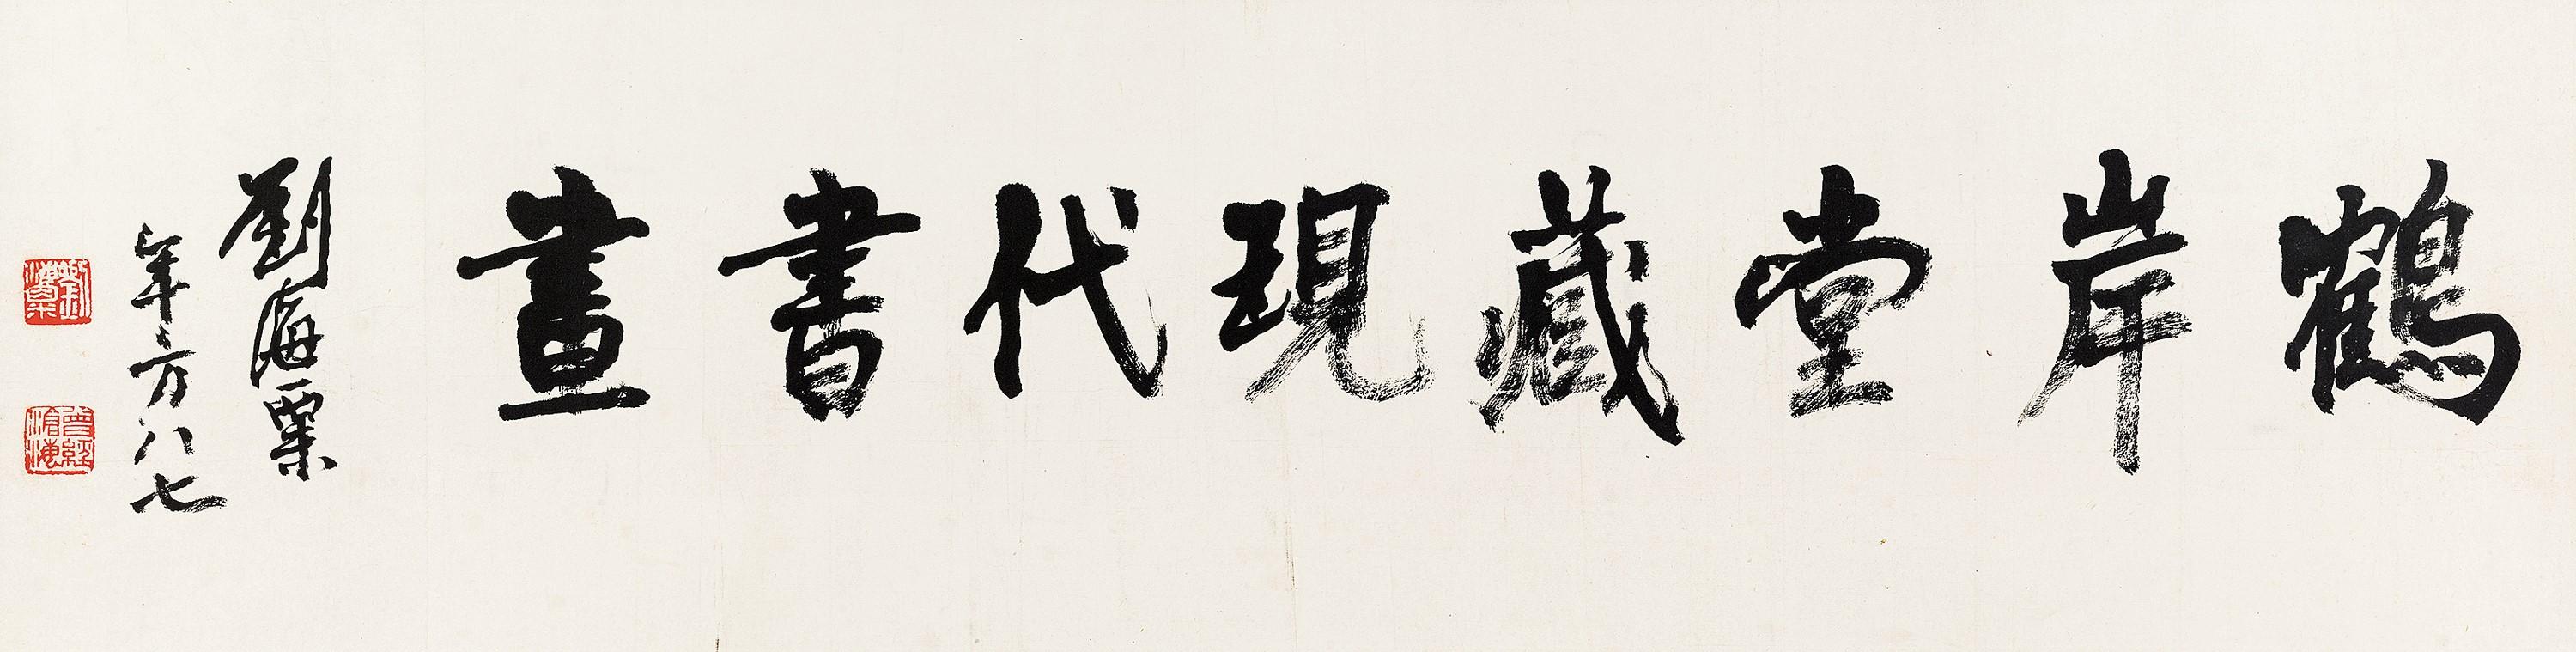 鶴岸堂藏現代書畫
劉海粟
年方八七
劉海粟
曾經滄海